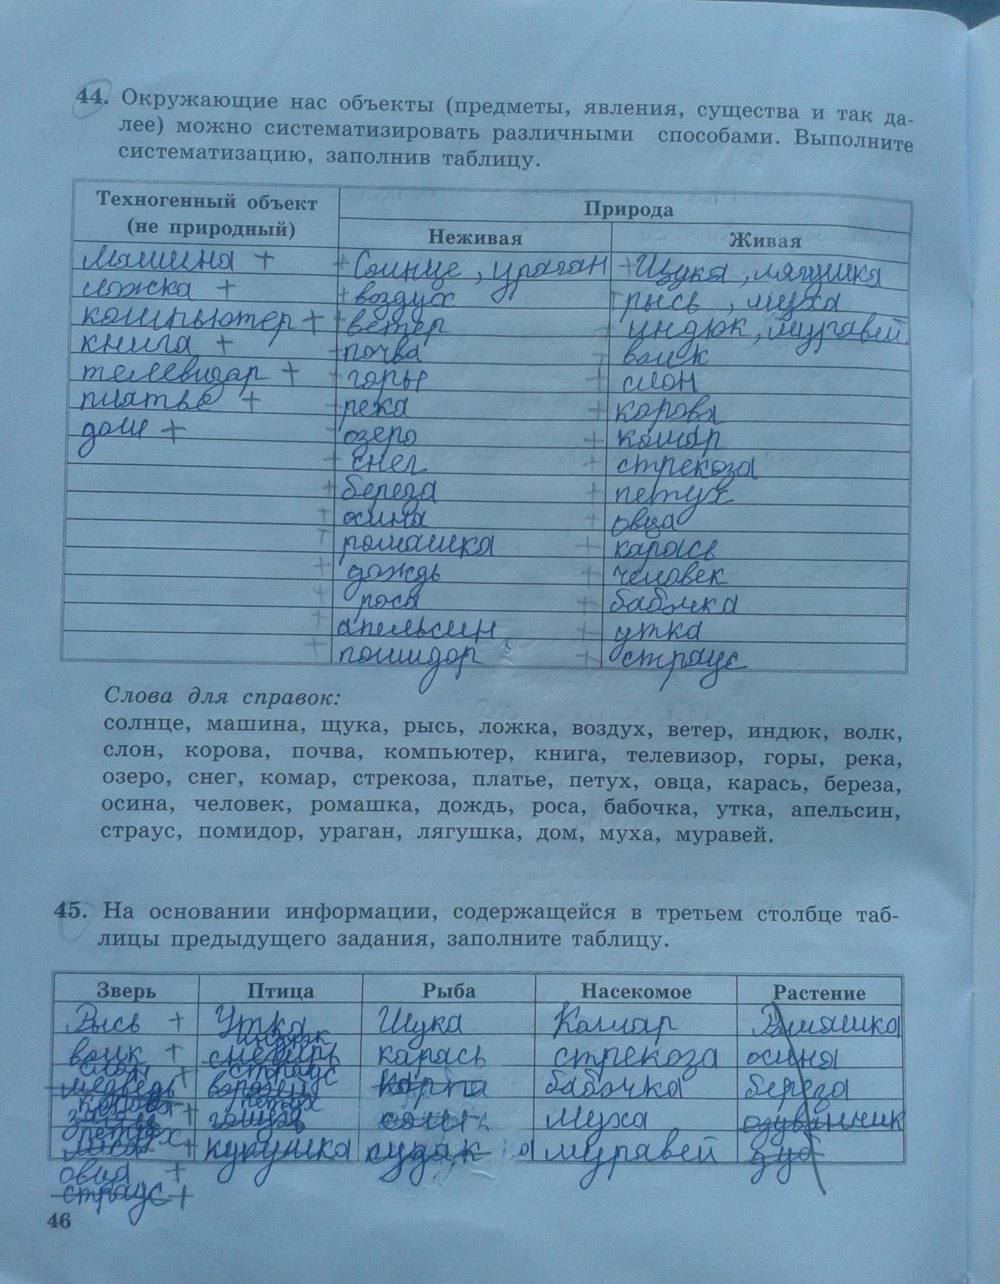 44. Окружающие нас объекты (предметы, явления, существа и так да-
лее) можно систематизировать различными способами. Выполните
систематизацию, заполнив таблицу.
Техногенный объект
(не природный)
Природа
Неживая
Живая
машина + + Солнце, ураган + Щука, лягушка
ложка + + воздух + рысь, муха
компьютер + + ветер + индюк, муравей
книга + + почва + волк
телевизар + + горы + слон
платье + + река + корова
дом + + озеро + комар
+ снег + стрекоза
+ береза + петух
+ осина + овца
+ ромашка + карась
+ дождь + человек
+ роса + бабочка
+ апельсин + утка
+ помидор + страус
Слова для справок:
солнце, машина, щука, рысь, ложка, воздух, ветер, индюк, волк,
слон, корова, почва, компьютер, книга, телевизор, горы, река,
озеро, снег, комар, стрекоза, платье, петух, овца, карась, береза,
осина, человек, ромашка, дождь, роса, бабочка, утка, апельсин,
страус, помидор, ураган, лягушка, дом, муха, муравей.
45. На основании информации, содержащейся в третьем столбце таб-
лицы предыдущего задания, заполните таблицу.
Зверь Птица Рыба Насекомое Растение
Рысь + Утка Щука Комар Ромашка
индюк
волк + снегирь карась стрекоза осина
слон страус
медведь + воробей карпа бабочка береза
корова петух
+ голубь муха одуванчик
петух
+ курушка судак муравей дуб
овца +
страус +
46